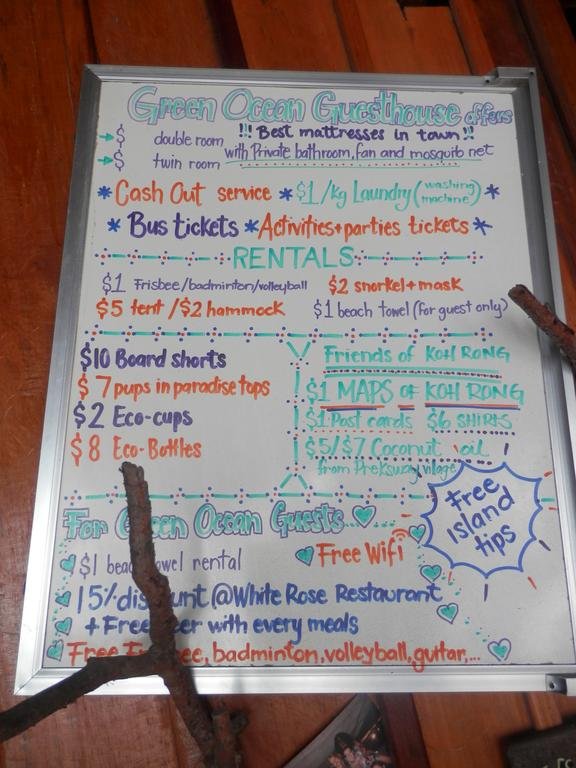 Green Ocean Guesthouse offers
$ double room !!! Best mattresses in town!!
$ twin room with Private bathroom, fan and mosquito net
* Cash Out service * $1/kg Laundry (washing machine) *
* Bus tickets * Activities + parties tickets *
RENTALS
$1 Frisbee/badminton/volleyball $2 snorkel + mask
$5 tent / $2 hammock $1 beach towel (for guest only)
$10 Board shorts
$7 pups in paradise tops
$2 Eco-cups
$8 Eco-Bottles
Friends of KOH RONG
$1 MAPS OF KOH RONG
$1 Post cards $6 SHIRTS
$5/$7 Coconut oil
from Preksvay village
Free island tips
For Green Ocean Guests
$1 beach towel rental Free Wifi
15% discount @White Rose Restaurant
+ Free beer with every meals
Free Frisbee, badminton, volleyball, guitar,...